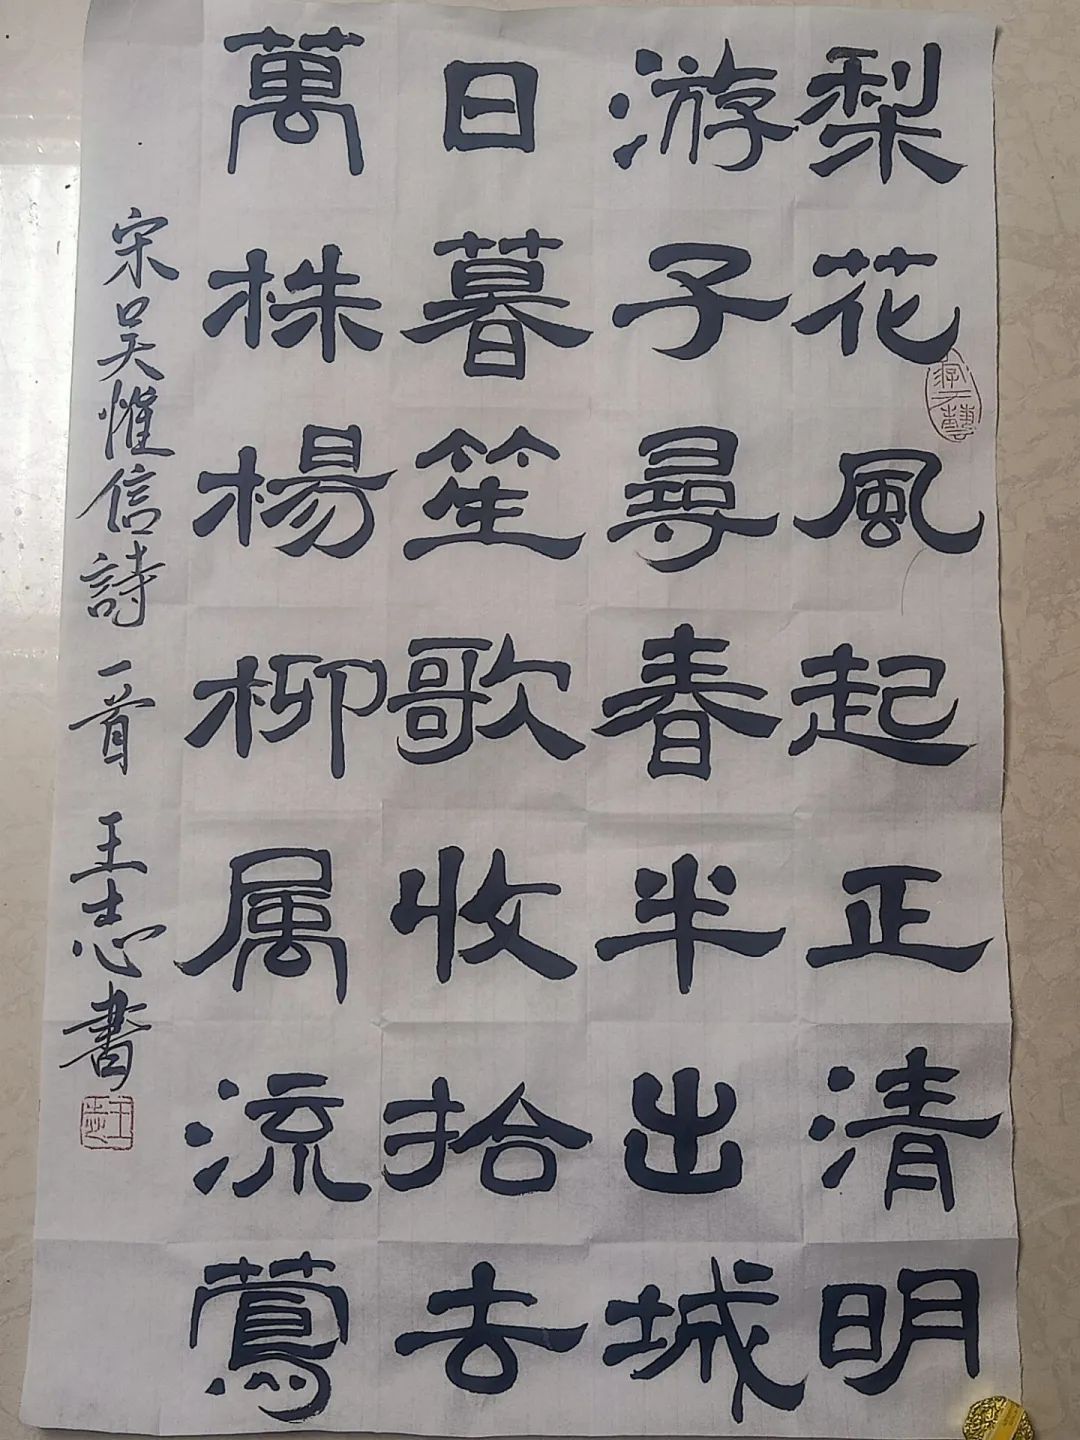 梨花風起正清明
游子尋春半出城
日暮笙歌收拾去
萬株楊柳属流鶯
宋吴惟信詩一首 王志書
王志